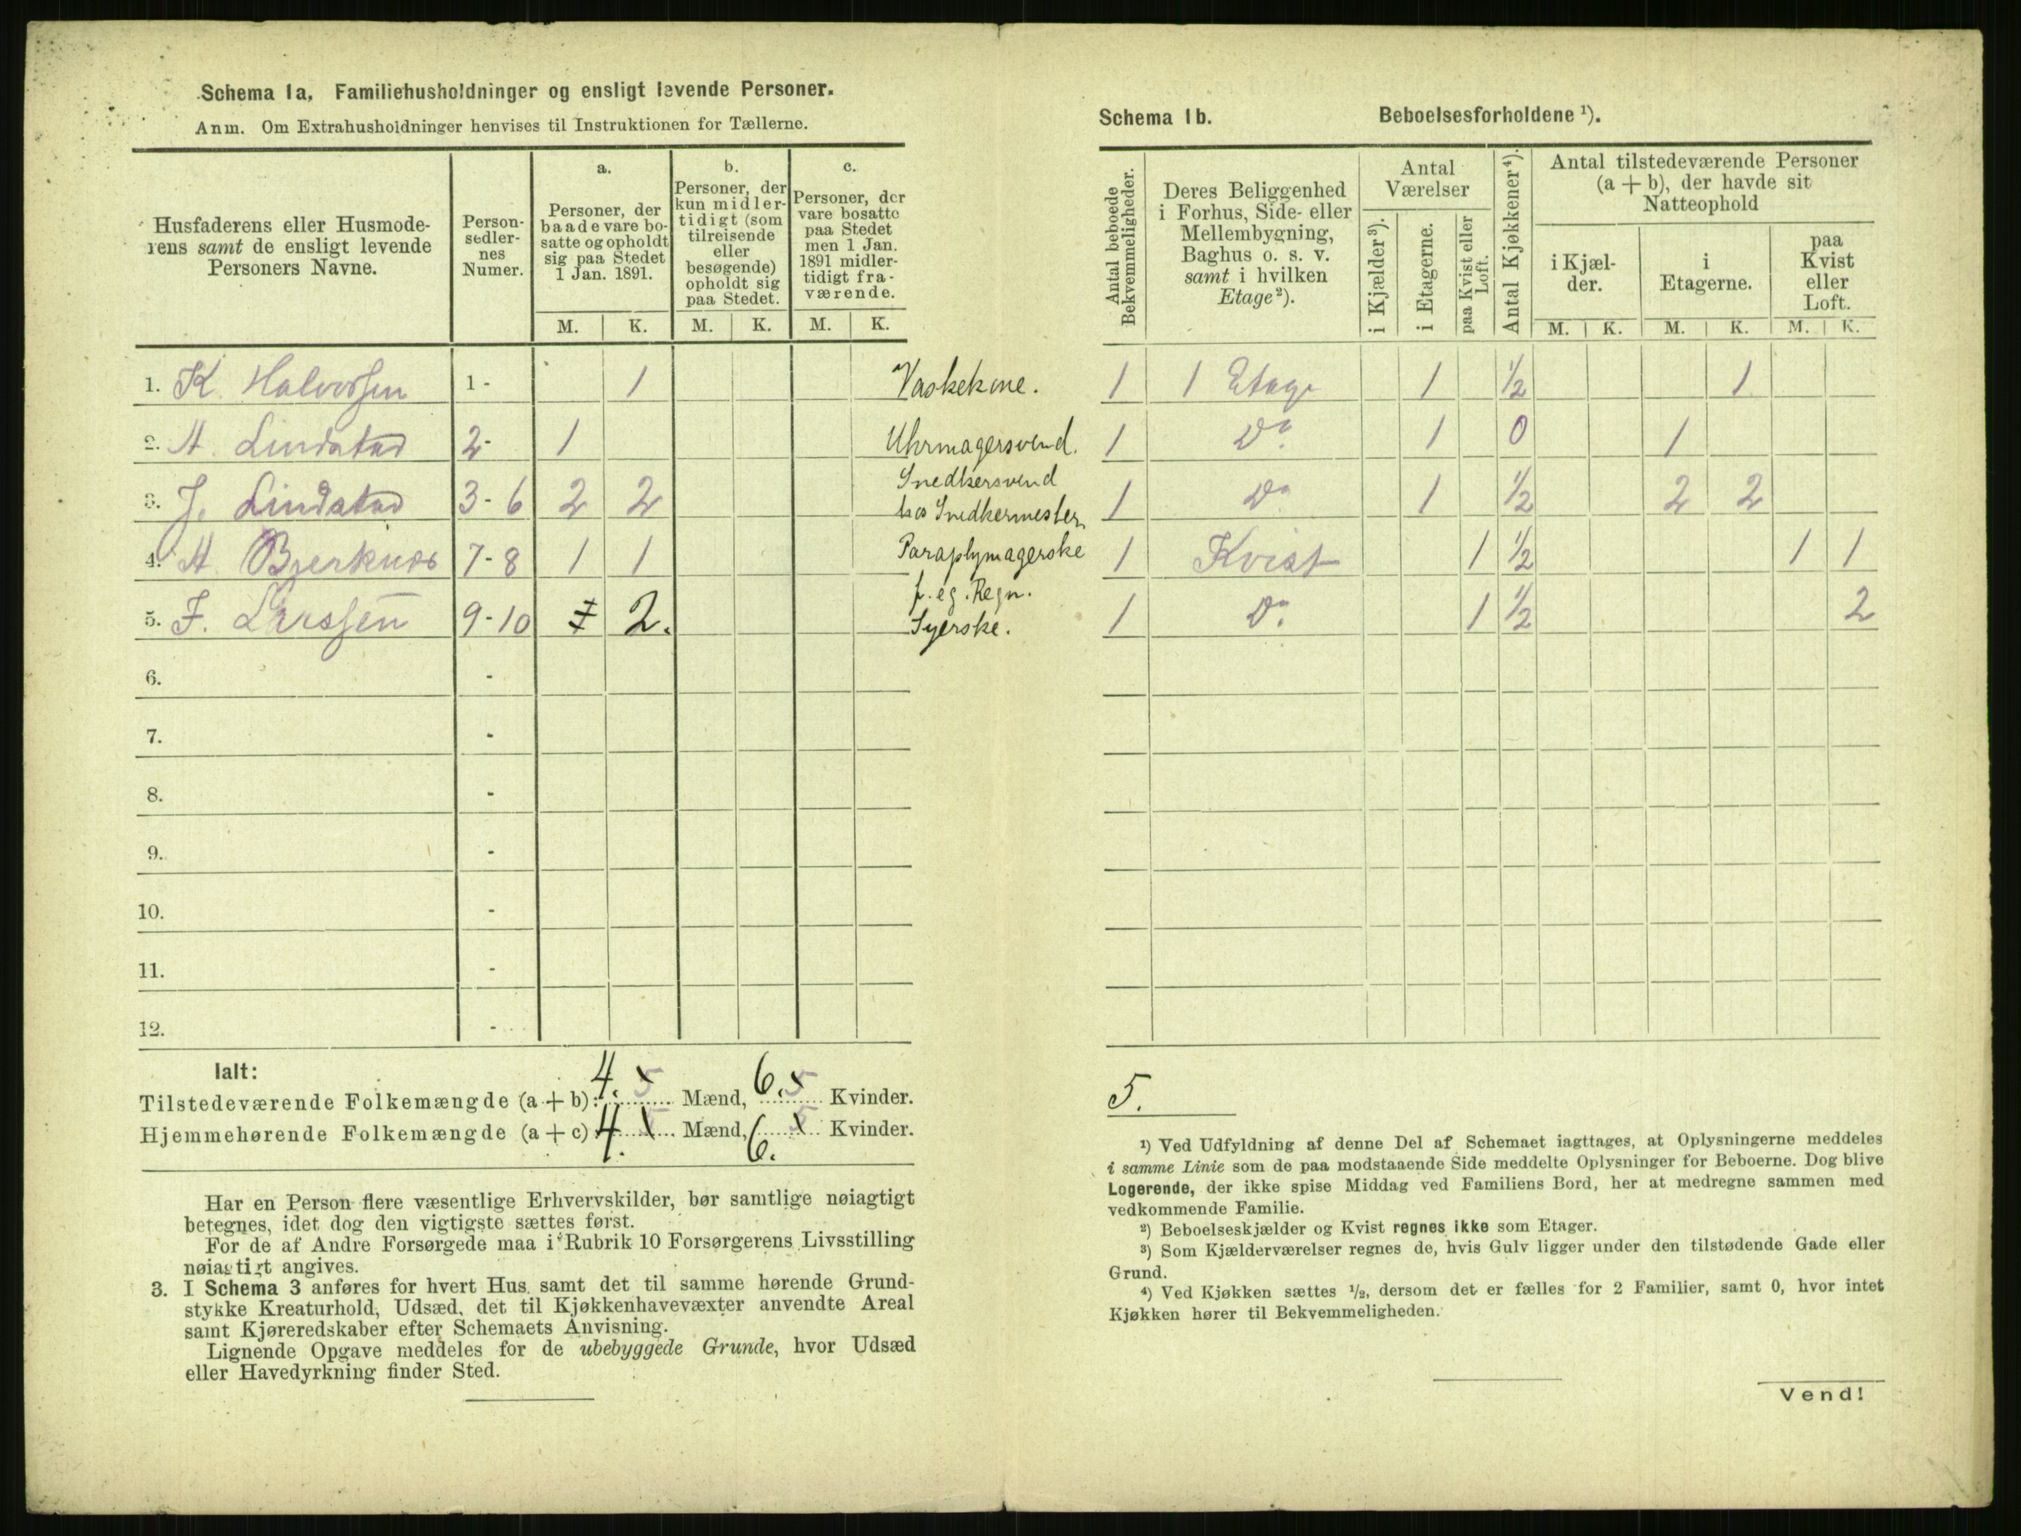 Schema 1a. Familiehusholdninger og ensligt levende Personer.
Anm. Om Extrahusholdninger henvises til Instruktionen for Tællerne.
Husfaderens eller Husmode-
rens samt de ensligt levende
Personers Navne.
Person-
sedler-
nes
Numer.
a.
Personer, der
baade vare bo-
satte og opholdt
sig paa Stedet
1 Jan. 1891.
b.
Personer, der
kun midler-
tidigt (som
tilreisende
eller
besøgende)
opholdt sig
paa Stedet.
c.
Personer, der
vare bosatte
paa Stedet
men 1 Jan.
1891 midler-
tidigt fra-
værende.
M. K. M. K. M. K.
1. K. Halvorsen 1 - 1 Vaskekone.
2. A. Lindstad 2 - 1 Uhrmagersvend.
3. J. Lindstad 3 - 6 2 2 Snedkersvend
hos Snedkermester
4. A. Bjerknes 7 - 8 1 1 Paraplymagerske
f. eg. Regn.
5. F. Larssen 9 - 10 2. Syerske.
6. -
7. -
8. -
9. -
10. -
11. -
12. -
Ialt:
Tilstedeværende Folkemængde (a + b): 4. 5 Mænd, 6. 5 Kvinder.
Hjemmehørende Folkemængde (a + c): 4. 5 Mænd, 6. 5 Kvinder.
Har en Person flere væsentlige Erhvervskilder, bør samtlige nøiagtigt
betegnes, idet dog den vigtigste sættes først.
For de af Andre Forsørgede maa i Rubrik 10 Forsørgerens Livsstilling
nøiagtigt angives.
3. I Schema 3 anføres for hvert Hus samt det til samme hørende Grund-
stykke Kreaturhold, Udsæd, det til Kjøkkenhavevæxter anvendte Areal
samt Kjøreredskaber efter Schemaets Anvisning.
Lignende Opgave meddeles for de ubebyggede Grunde, hvor Udsæd
eller Havedyrkning finder Sted.
Schema 1b. Beboelsesforholdene ¹).
Antal beboede
Bekvemmeligheder.
Deres Beliggenhed
i Forhus, Side- eller
Mellembygning,
Baghus o. s. v.
samt i hvilken
Etage²).
Antal
Værelser
i Kjælder³).
i Etagerne.
paa Kvist eller
Loft.
Antal Kjøkkener⁴).
Antal tilstedeværende Personer
(a + b), der havde sit
Natteophold
i Kjæl-
der.
i
Etagerne.
paa
Kvist
eller
Loft.
M. K. M. K. M. K.
1 1 Etage 1 ½ 1
1 Do. 1 0 1
1 Do 1 ½ 2 2
1 Kvist 1 ½ 1 1
1 Do. 1 ½ 2
5.
¹) Ved Udfyldning af denne Del af Schemaet iagttages, at Oplysningerne meddeles
i samme Linie som de paa modstaaende Side meddelte Oplysninger for Beboerne. Dog blive
Logerende, der ikke spise Middag ved Familiens Bord, her at medregne sammen med
vedkommende Familie.
²) Beboelseskjælder og Kvist regnes ikke som Etager.
³) Som Kjælderværelser regnes de, hvis Gulv ligger under den tilstødende Gade eller
Grund.
⁴) Ved Kjøkken sættes ½, dersom det er fælles for 2 Familier, samt 0, hvor intet
Kjøkken hører til Bekvemmeligheden.
Vend!